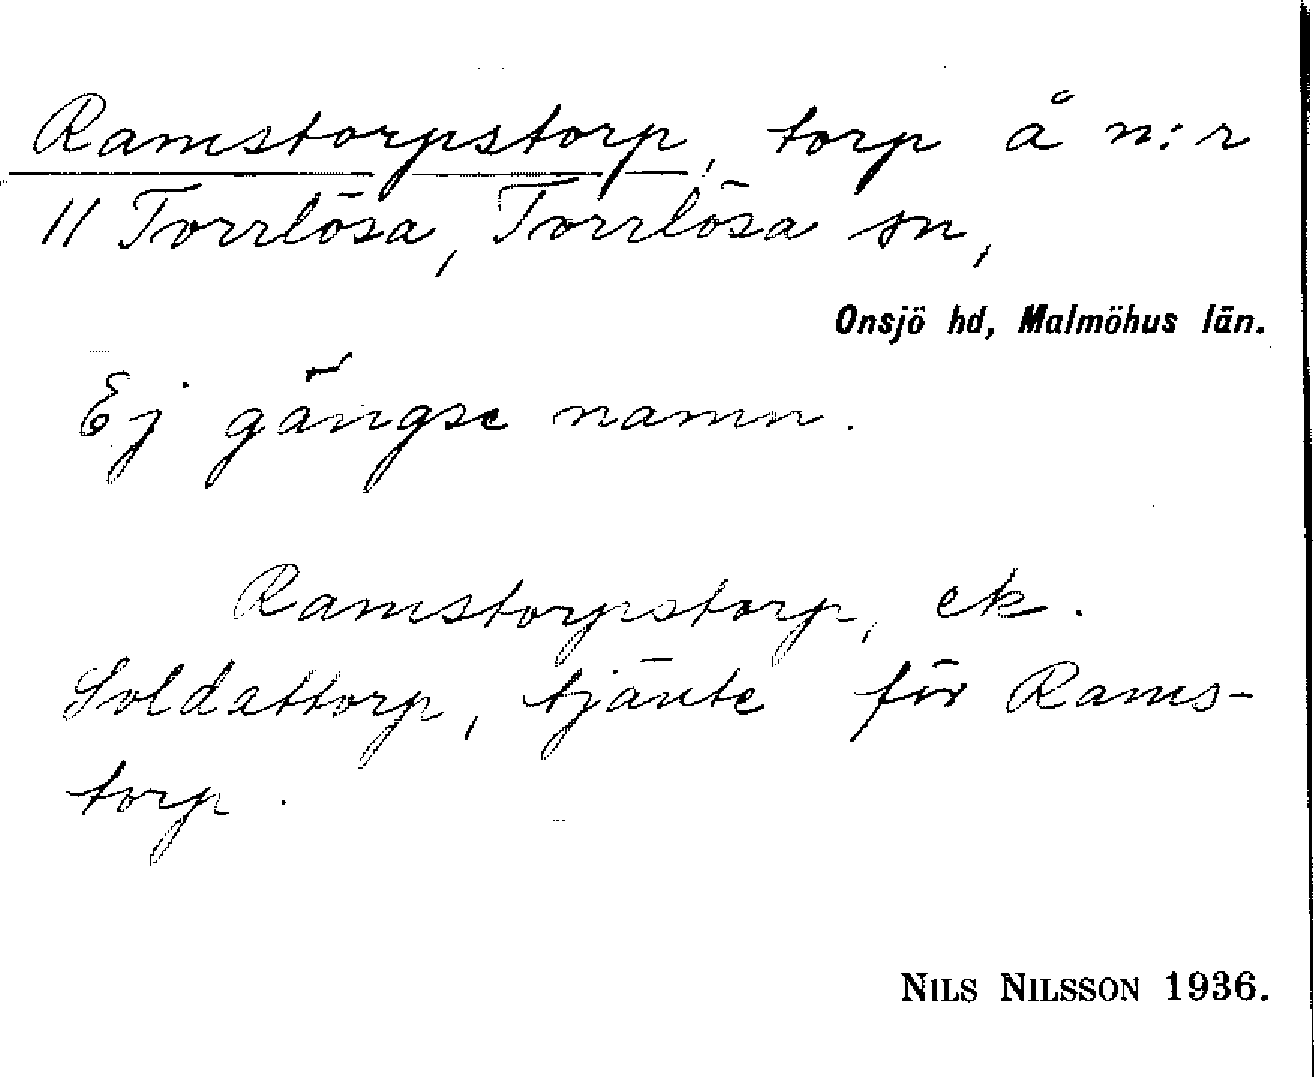 Ramstorpstorp, torp å n:r
11 Torrlösa, Torrlösa sn,
Onsjö hd, Malmöhus län.
Ej gängse namn.
Ramstorpstorp, ek.
Soldattorp, tjänte för Rams-
torp.
NILS NILSSON 1936.